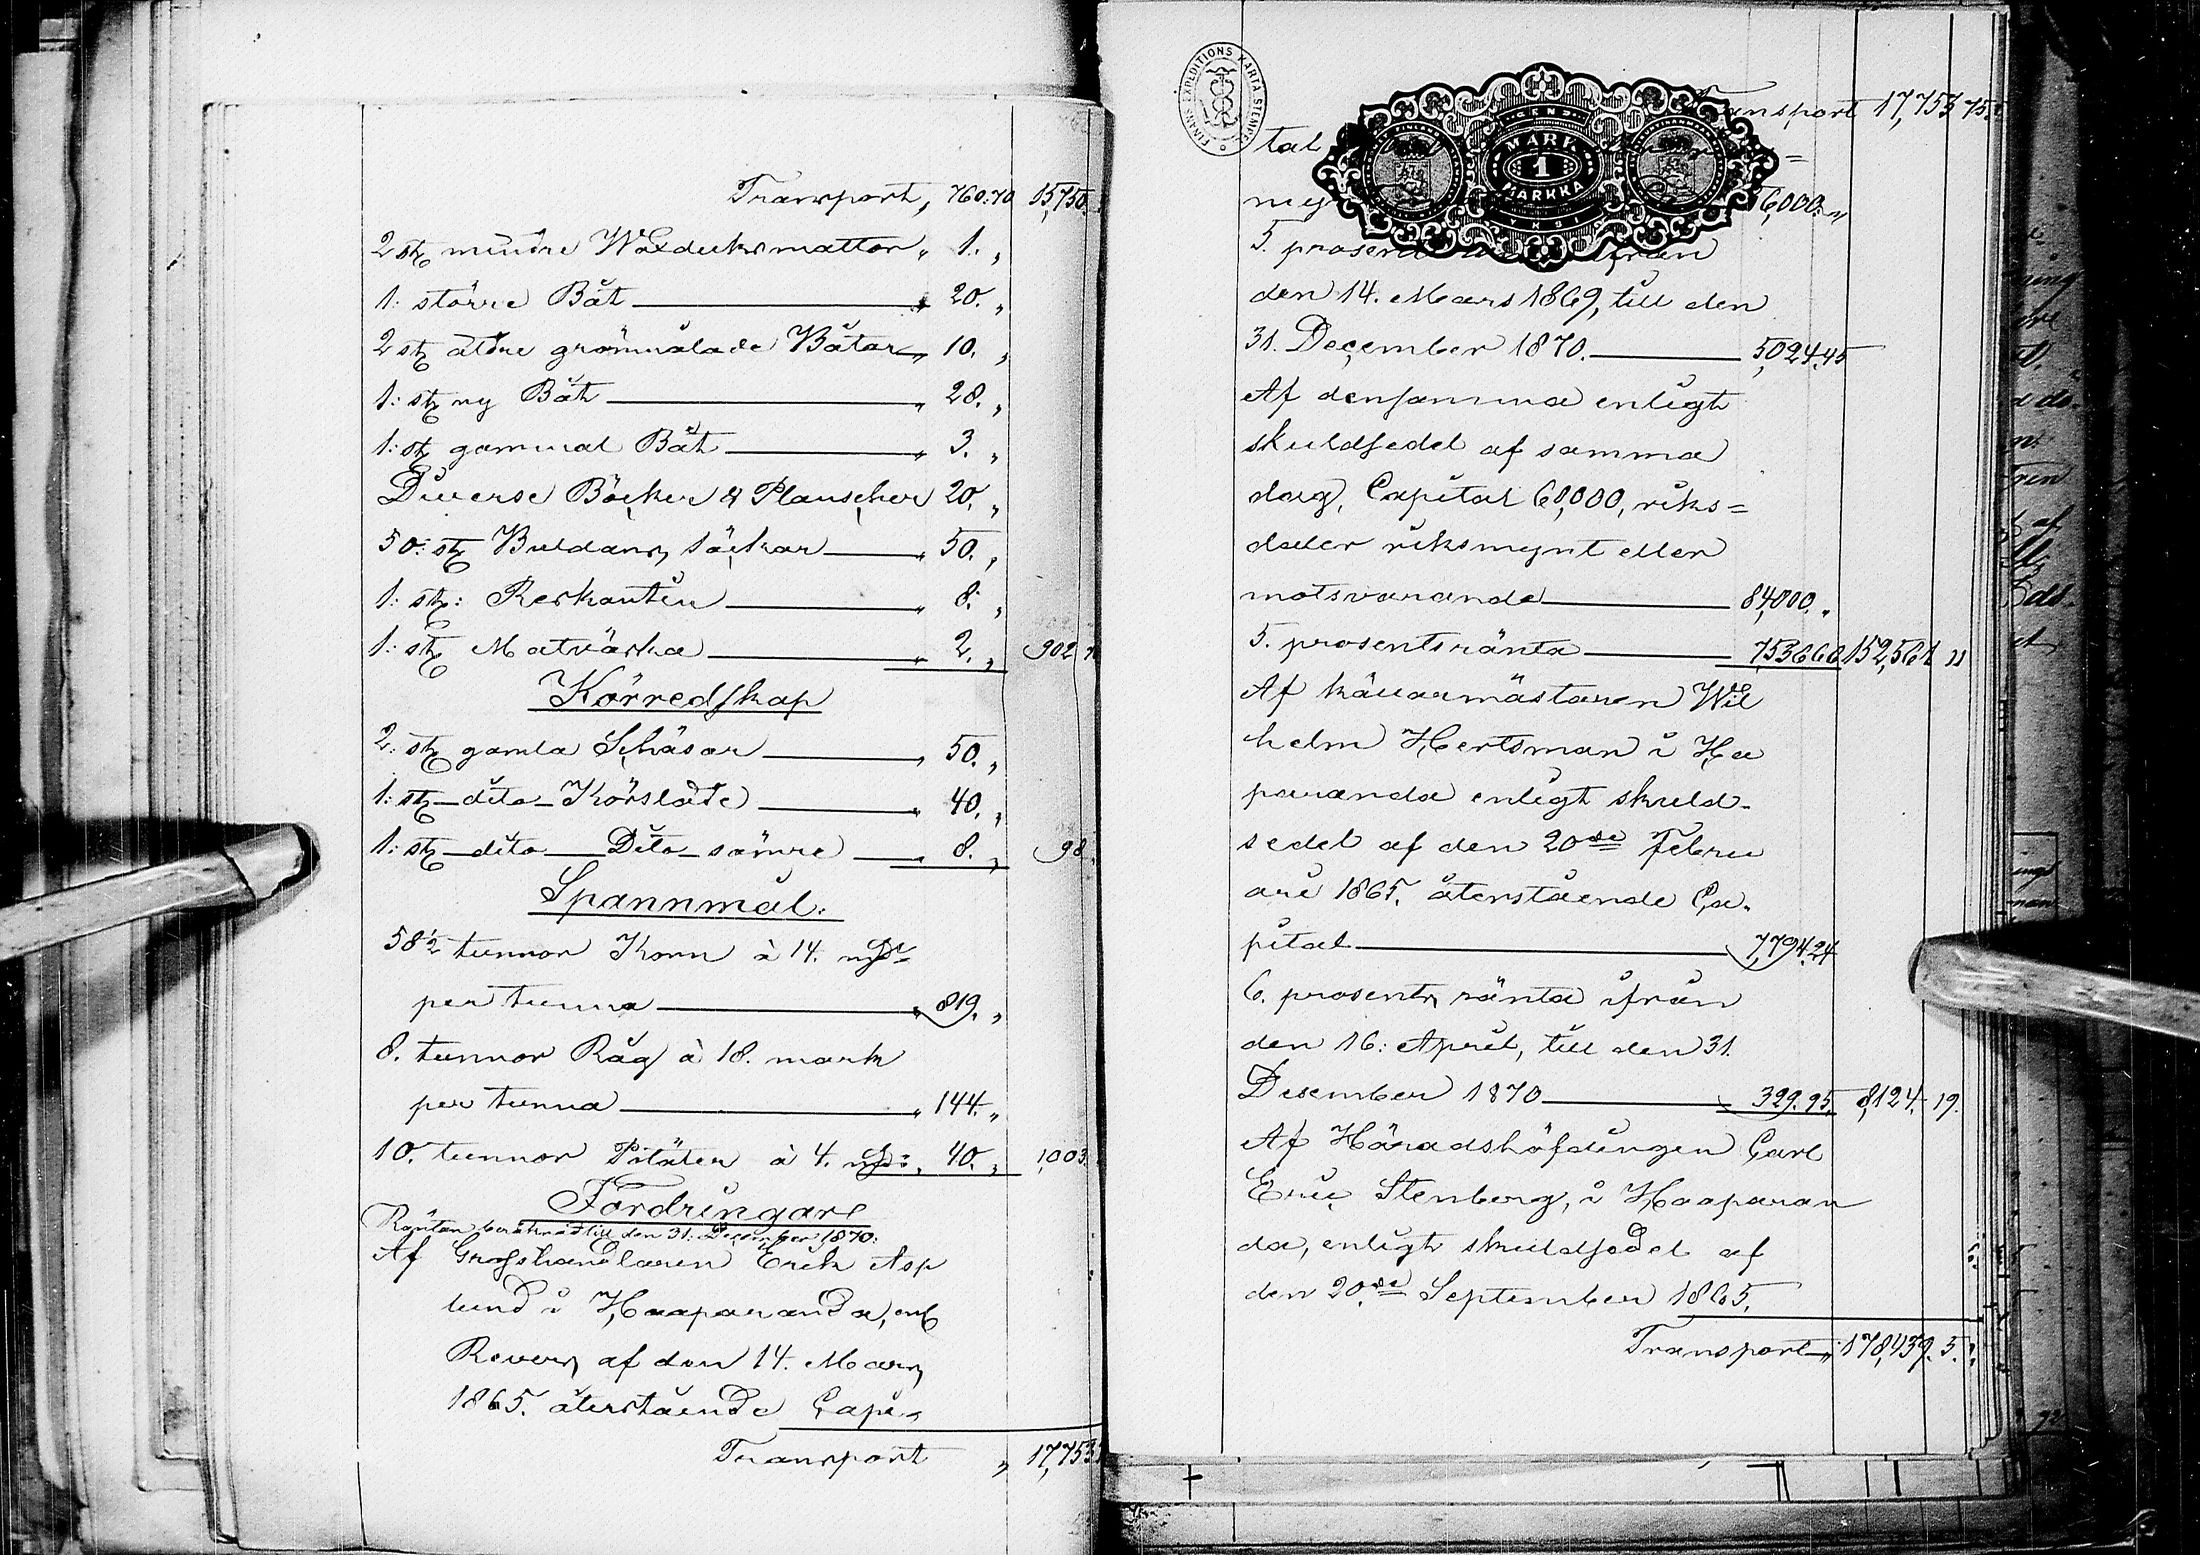 Transport, 760:70 15,750.
2 st mindre Waxduksmattor „ 1. „
1: större Båt „ 20. „
2 st äldre grönmålade Båtar „ 10. „
1: st ny Båt „ 28. „
1: st gammal Båt „ 3. „
Diverse Böcker & Plauscher 20. „
50: st Buldans säckar „ 50. „
1: st: Reskantin „ 8. „
1: st Matväska „ 2. „ 902
Körredskap
2: st gamla Schäsar „ 50. „
1: st dito Körsläde „ 40. „
1: st dito Dito sämre 8. „ 98.
Spannmål.
58 1/2 tunnor Korn à 14.
per tunna „ 819. „
8. tunnor Råg à 18. mark
per tunna „ 144. „
10. tunnor Pitäter à 4. 40. „ 1,003.
Fordringar
Räntan beräknad till den 31. December 1870:
Af Grosshandlaren Erik Asp
lund i Haaparanda, enl
Revers af den 14. Mars
1865. återstående Capi-
Transport „ 17,753
FINANS EXPEDITIONS KARTA STEMPEL
Transport 17,753 75.
tal
MARK
1
MARKKA
my 56,000. „
5. prosent ifrån
den 14. Mars 1869, till den
31. December 1870. 5,024.45
Af densamma enligt
skuldsedel af samma
dag, Capital 60,000, riks=
daler riksmynt eller
motsvarande 84,000. „
5. prosents ränta 7,536.66 152,561 11
Af källarmästaren Wil
helm Hertsman i Ha
paranda enligt skuld-
sedel af den 20de Febru
ari 1865. återstående Ca-
pital 7,794.24
6. prosents ränta ifrån
den 16: April, till den 31.
Desember 1870 329.95. 8,124. 19.
Af Häradshöfdingen Carl
Eric Stenborg, i Haaparan
da, enligt skuldsedel af
den 20de September 1865.
Transport „ 178,439. 5.